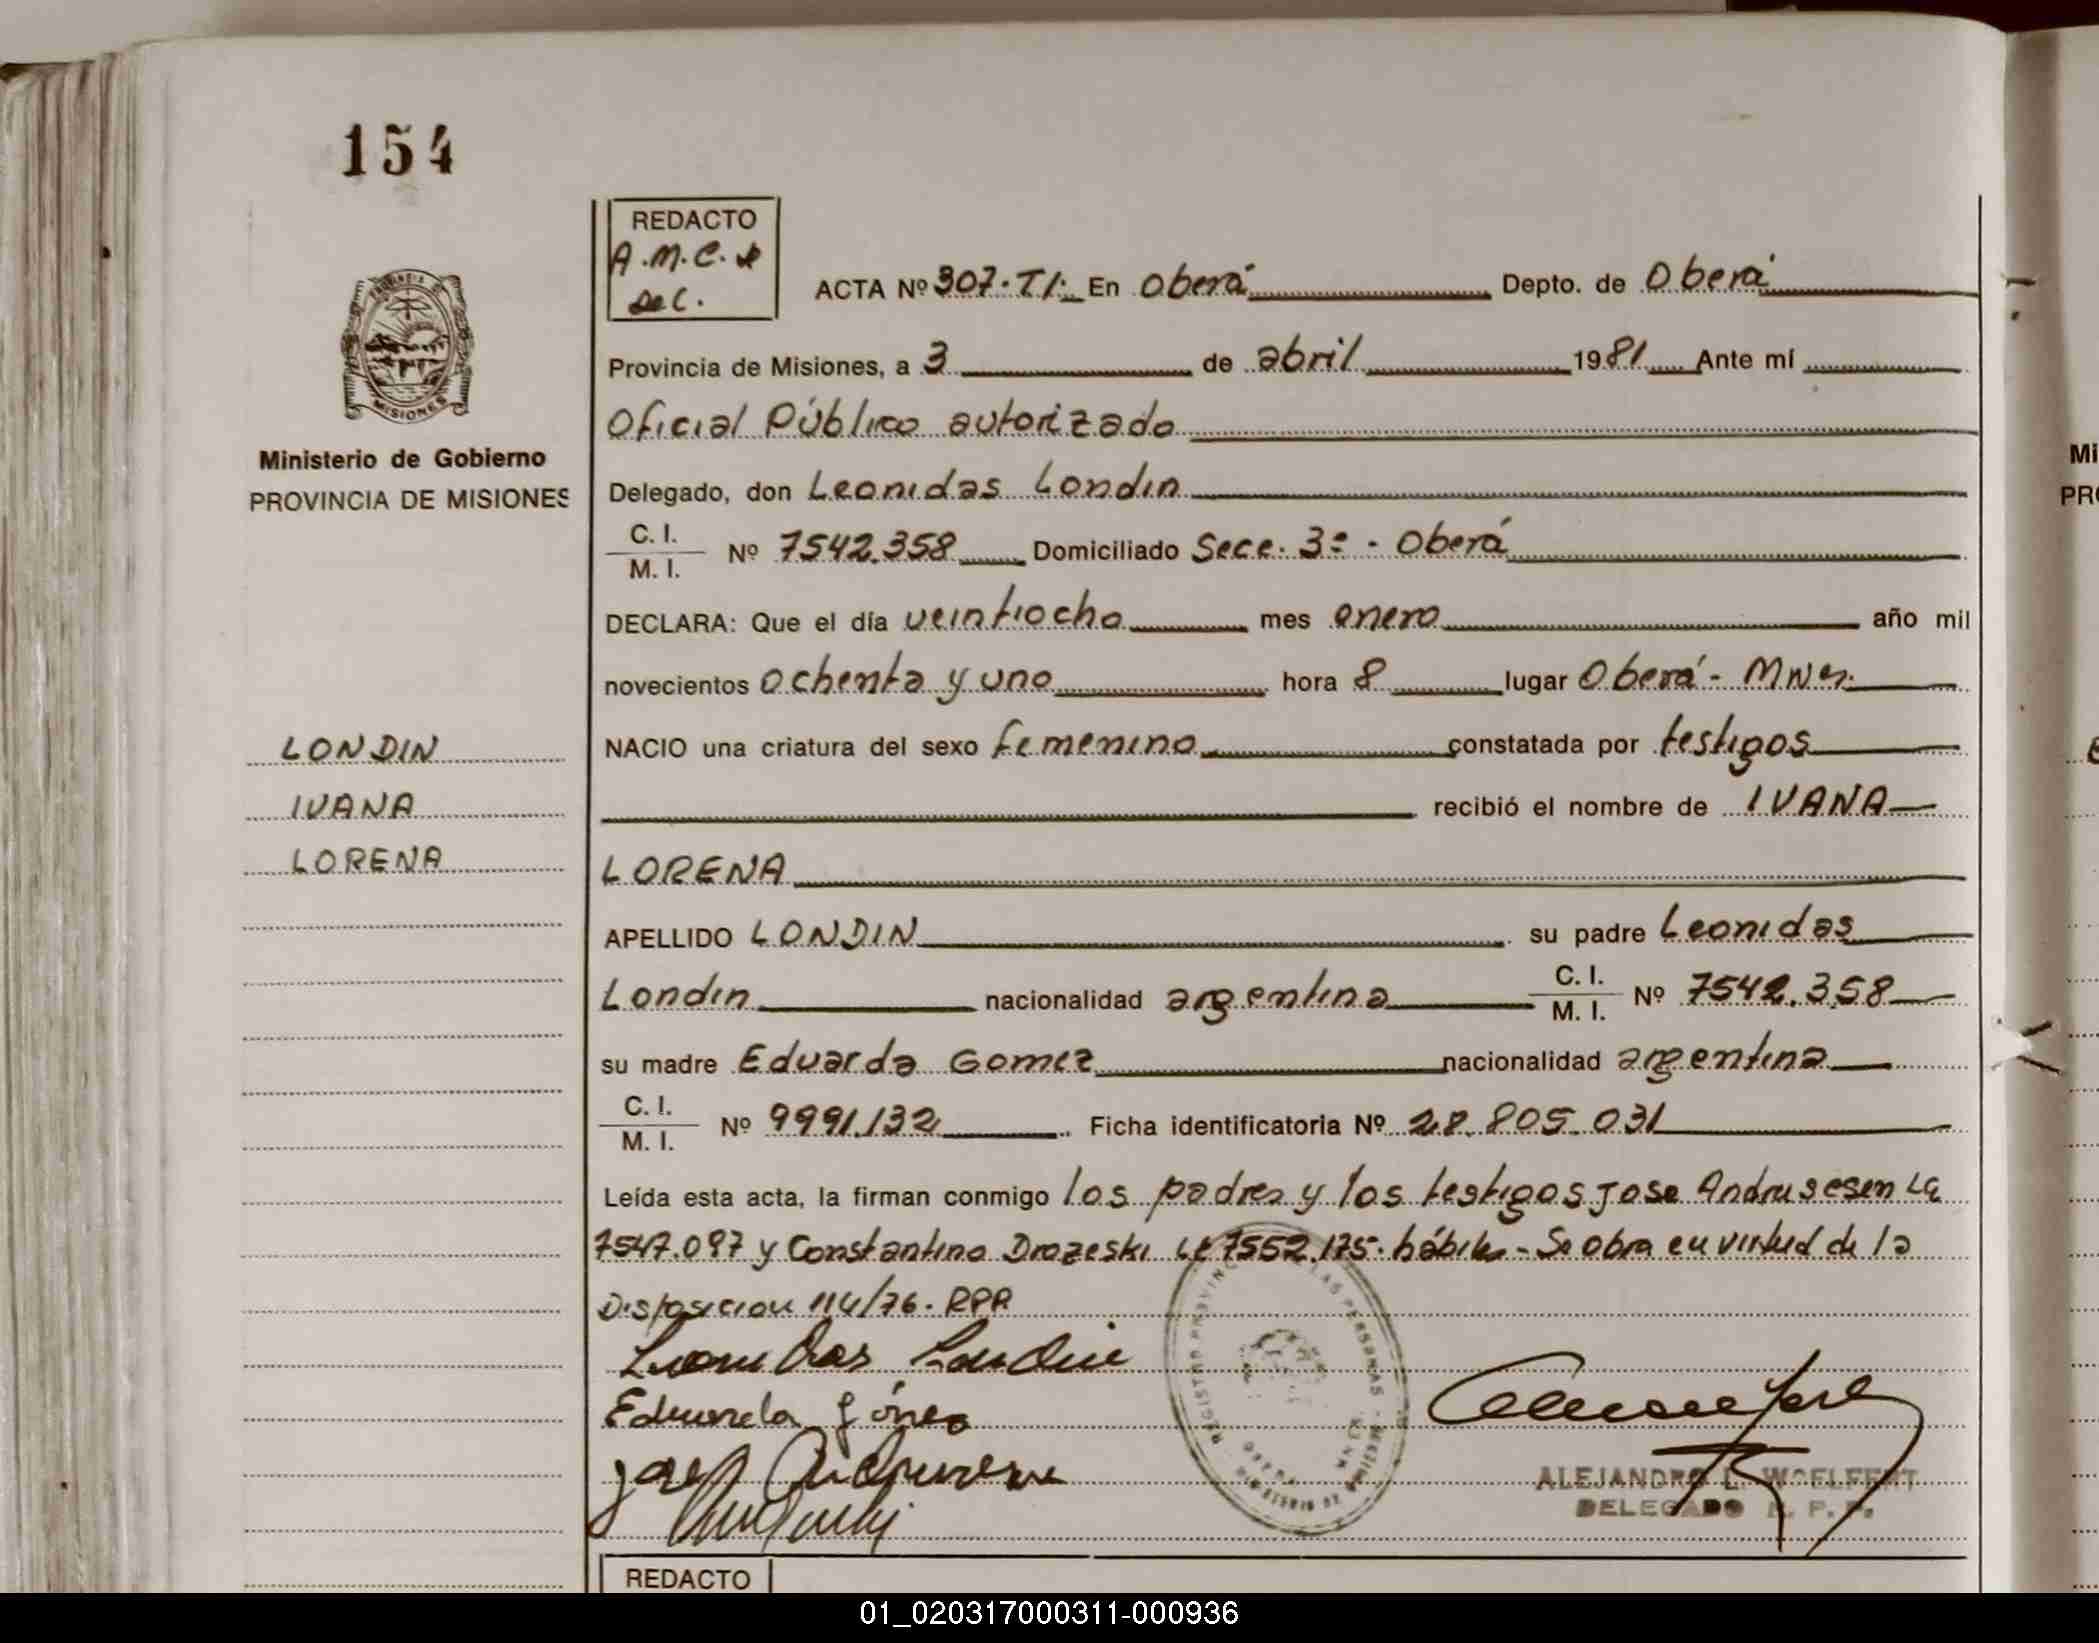 154
REDACTO
A.M.C. de
De C.
ACTA Nº 307. T I. En Oberá Depto. de Oberá
Provincia de Misiones, a 3 de abril 1981 Ante mí
Oficial Público autorizado
Delegado, don Leonidas Londin
C. I.
M. I. Nº 7542.358 Domiciliado Secc. 3ª - Oberá
DECLARA: Que el día veintiocho mes enero año mil
novecientos ochenta y uno hora 8 lugar Oberá - Mnes.
NACIO una criatura del sexo femenino constatada por testigos
recibió el nombre de IVANA
LORENA
APELLIDO LONDIN su padre Leonidas
Londin nacionalidad argentina C. I.
M. I. Nº 7542.358
su madre Eduarda Gomez nacionalidad argentina
C. I.
M. I. Nº 9991.132 Ficha identificatoria Nº 28.805.031
Leída esta acta, la firman conmigo los padres y los testigos Jose
7547.097 y Constantino Drozeski LE 7552.175. hábiles - Se obra en virtud de la
Disposicion 114/76. RPP
Leonidas Londin
Eduarda Gómez
ALEJANDRO L. WOELFERT
DELEGADO R. P. P.
PROVINCIA MISIONES
Ministerio de Gobierno
PROVINCIA DE MISIONES
LONDIN
IVANA
LORENA
REDACTO
Mi
PRO
01_020317000311-000936